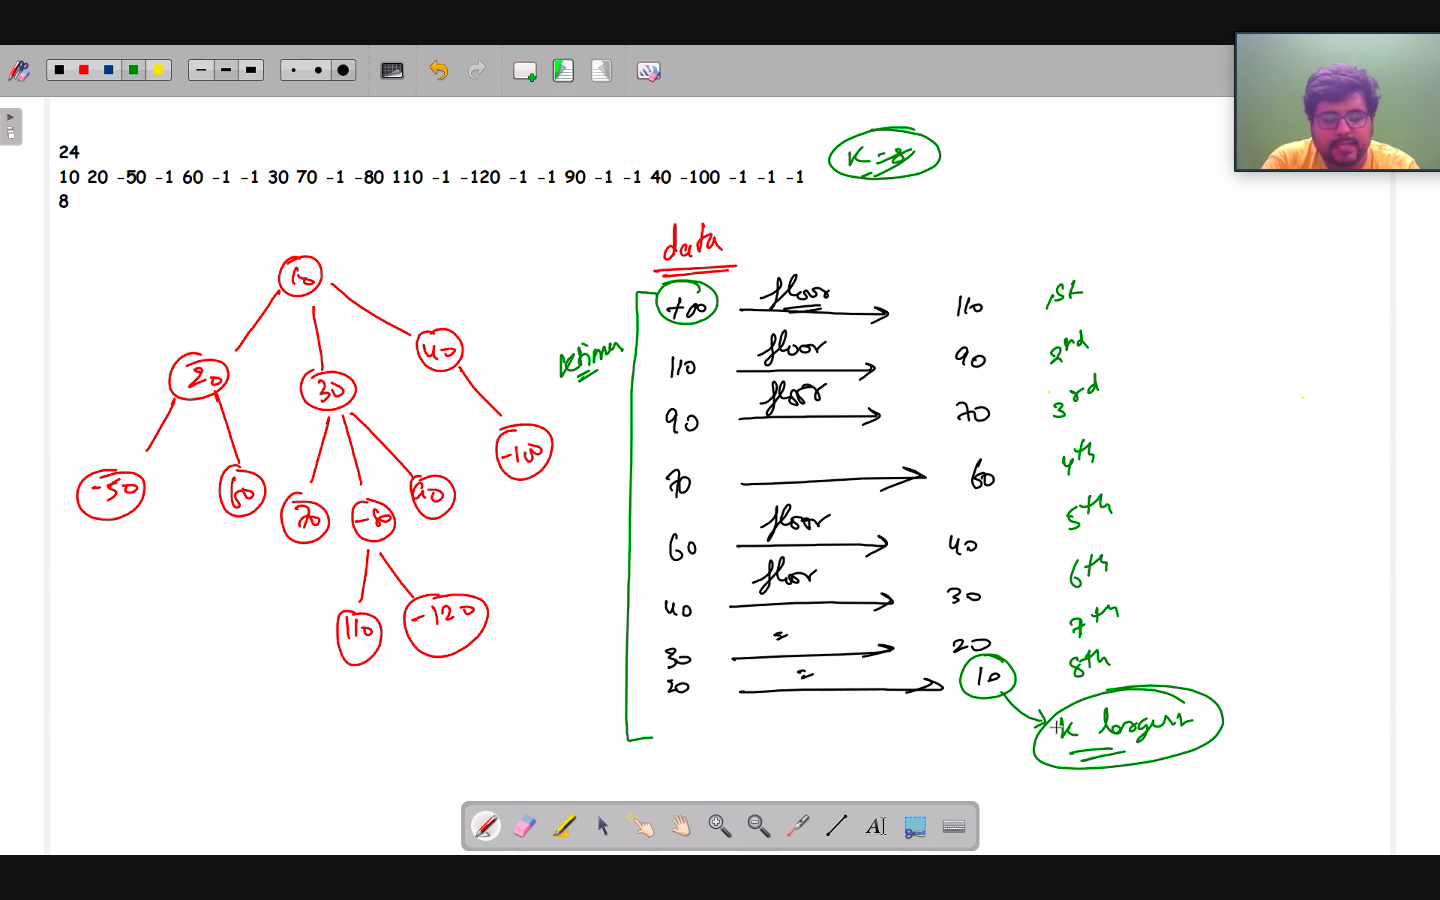 24
10 20 -50 -1 60 -1 -1 30 70 -1 -80 110 -1 -120 -1 -1 90 -1 -1 40 -100 -1 -1 -1
8
K = 8
data
10
20 30 40
-50 60 70 -80 90 -100
110 -120
+∞ floor 110 1st
110 floor 90 2nd
90 floor 70 3rd
70 60 4th
60 floor 40 5th
40 floor 30 6th
30 = 20 7th
20 = 10 8th
K largest
AI